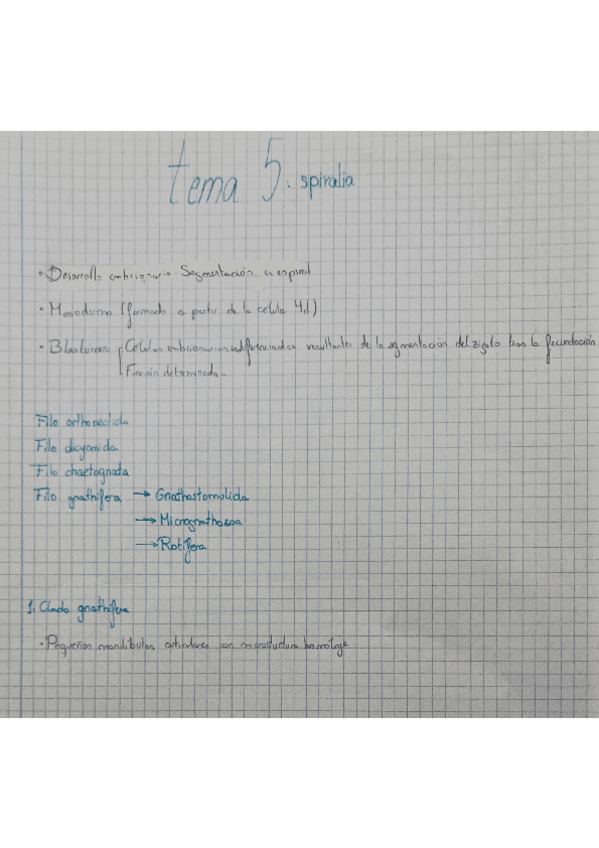 tema 5. spiralia
• Desarrollo embrionario Segmentación es espiral
• Mesodermo (formado a partir de la celula 4d)
• Blastómero Celulas embrionarias indiferenciadas resultantes de la segmentacion del zigoto tras la fecundación
Función determinada
Filo orthonectida
Filo dicyemida
Filo chaetognata
Filo gnathifera → Gnathostomulida
→ Micrognathozoa
→ Rotifera
1. Clado gnathifera
• Pequeñas mandibulas articulares con microstuctura homologa